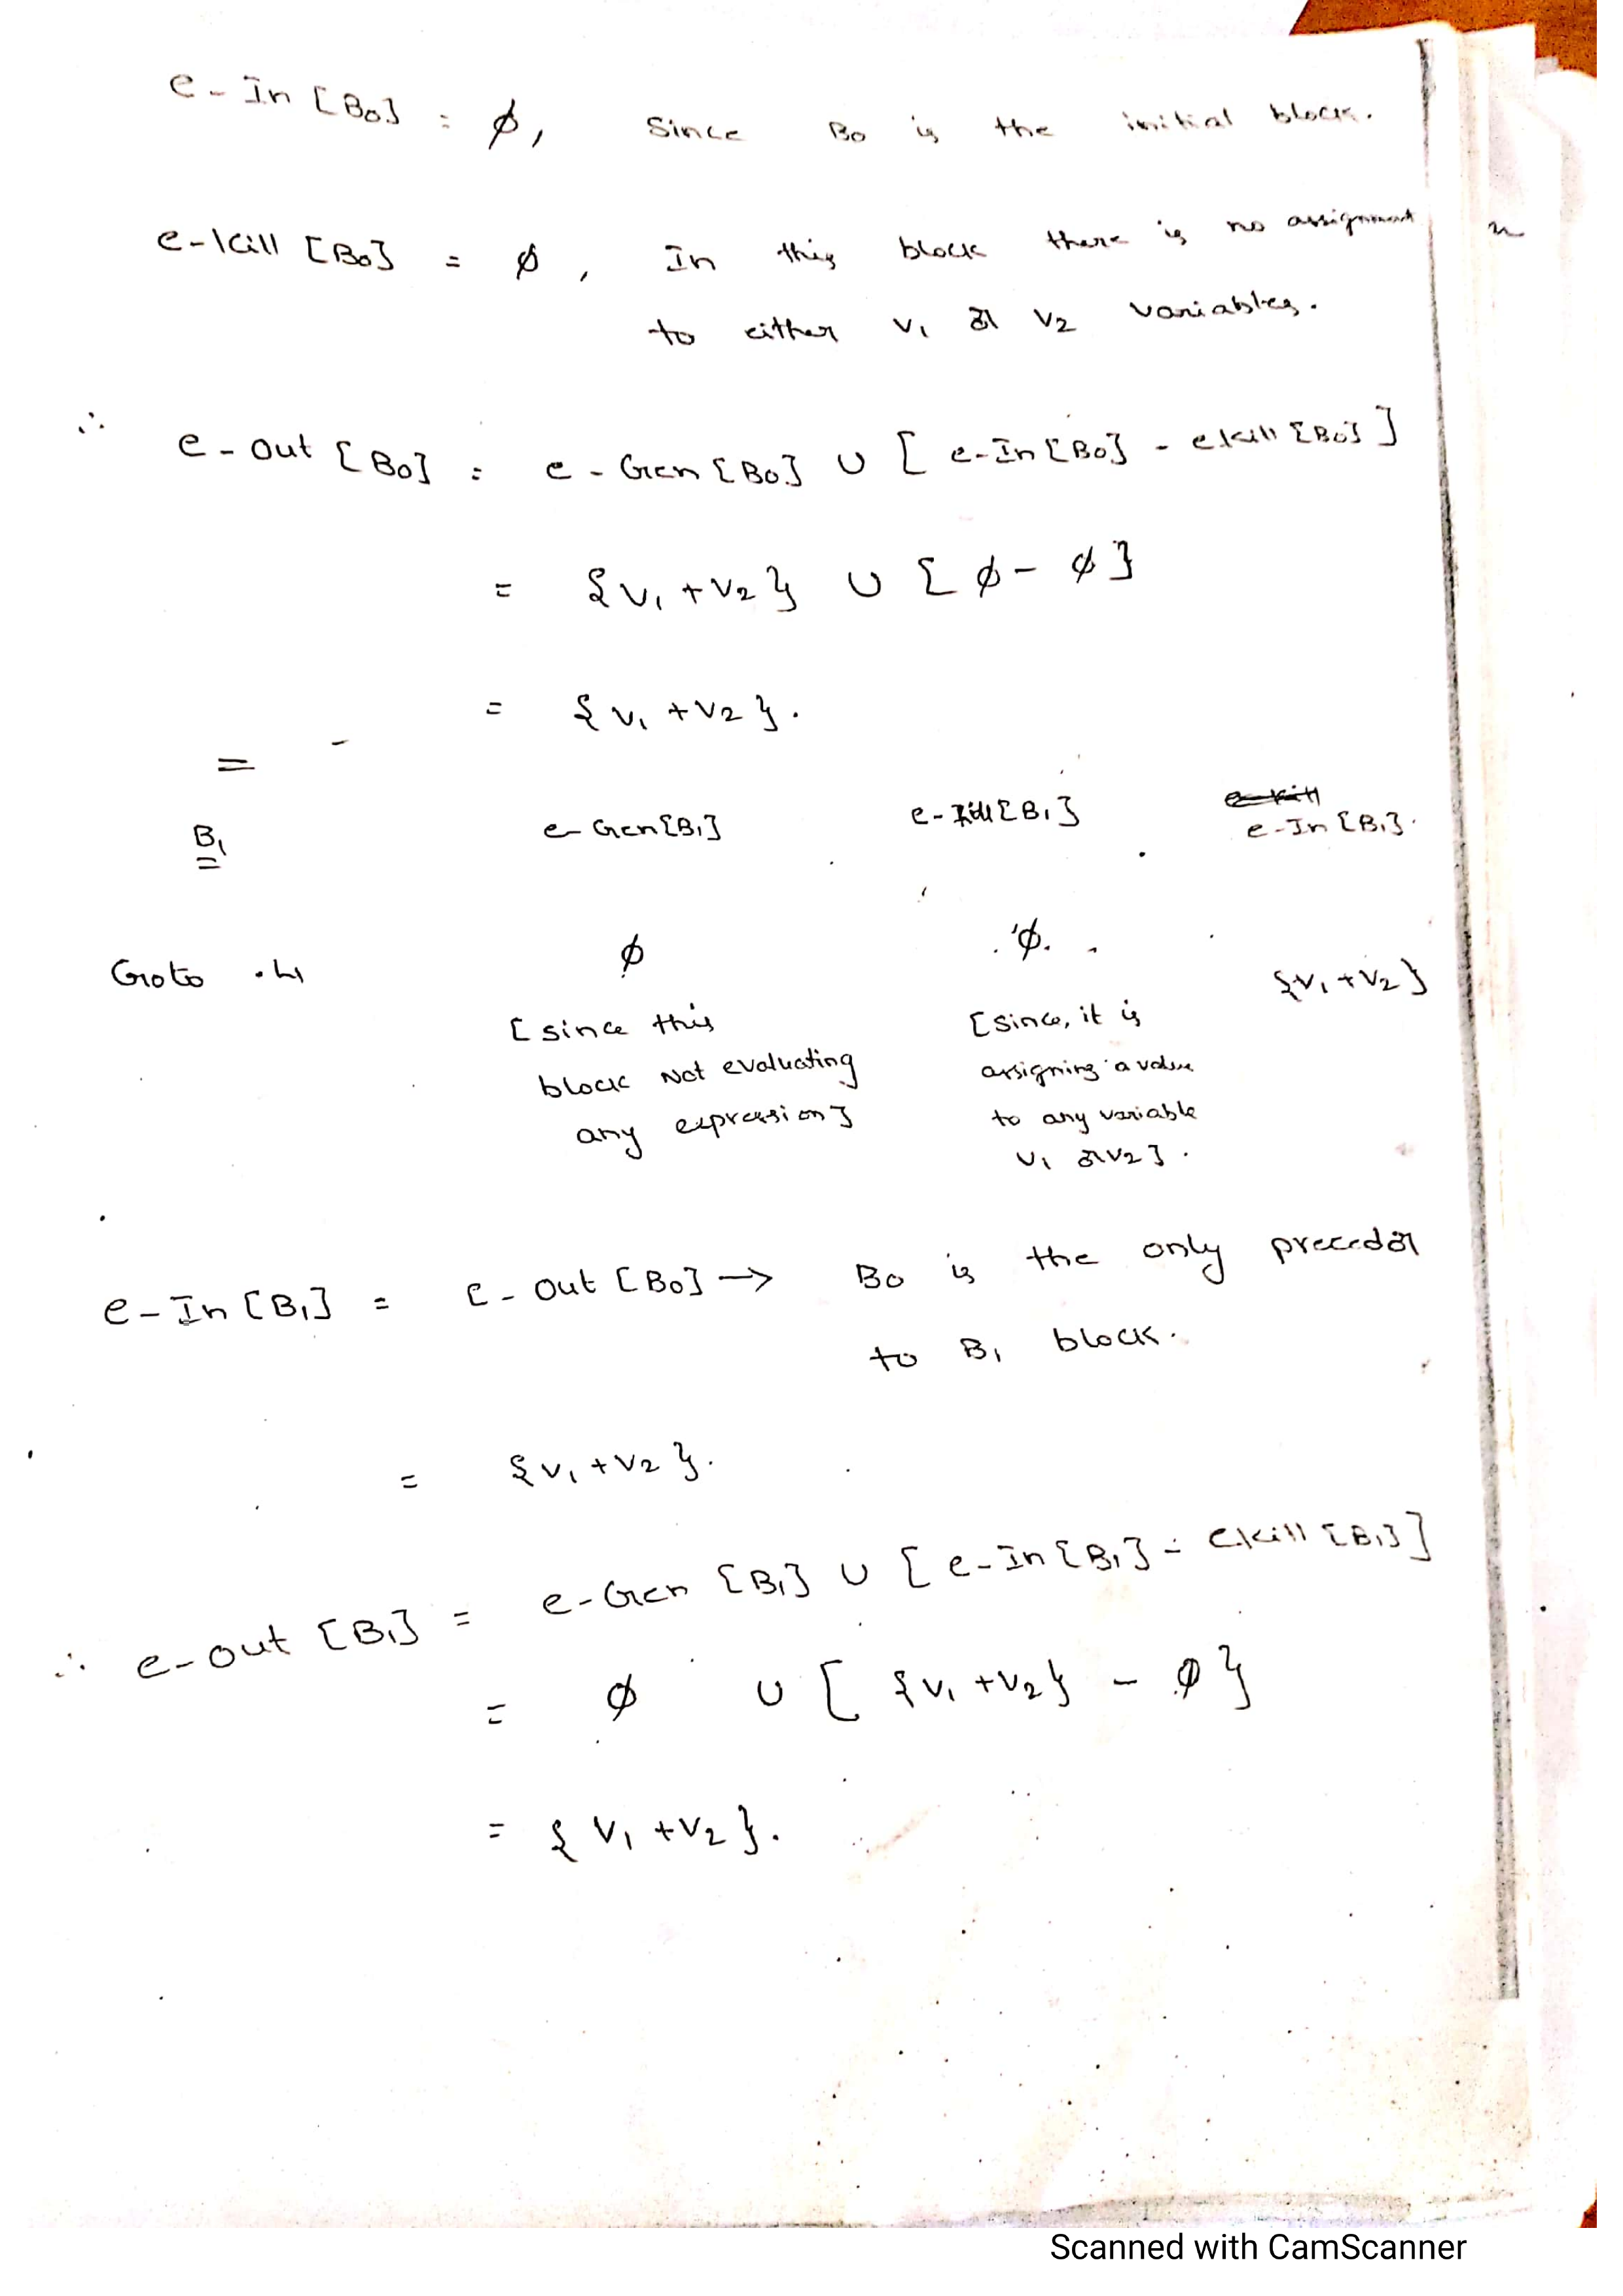 e-In [B0] = ϕ, Since B0 is the initial block.
e-kill [B0] = ϕ, In this block there is no assignment
to either V1 or V2 variables.
∴ e-out [B0] = e-Gen [B0] ∪ [e-In [B0] - ekill [B0]]
= {V1 + V2} ∪ [ϕ - ϕ]
= {V1 + V2}.
B1 e-Gen[B1] e-kill[B1] e-In [B1].
Goto ϕ ϕ {V1 + V2}
[since this [since, it is
block Not evaluating assigning a value
any expression] to any variable
V1 or V2].
e-In [B1] = e-out [B0] → B0 is the only precedor
to B1 block.
= {V1 + V2}.
∴ e-out [B1] = e-Gen [B1] ∪ [e-In [B1] - ekill [B1]]
= ϕ ∪ [{V1 + V2} - ϕ}
= {V1 + V2}.
Scanned with CamScanner